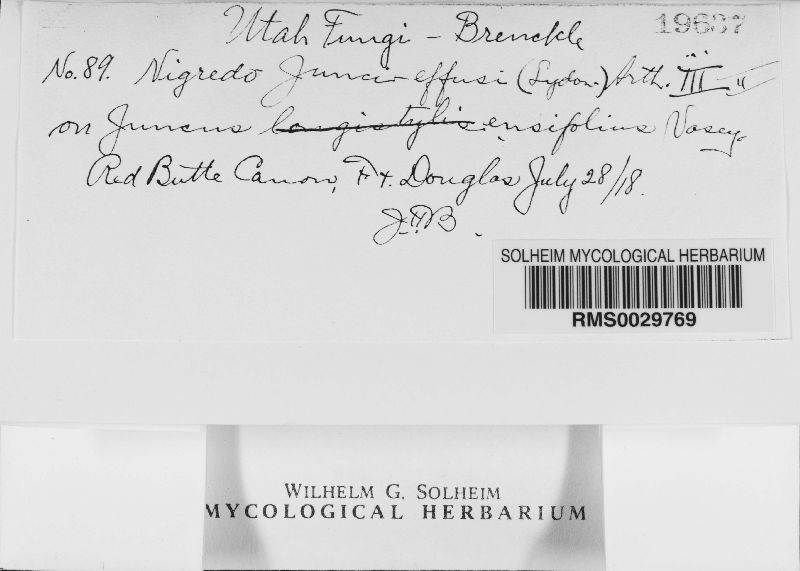 Utah Fungi – Brenckle
19637
No. 89. Nigredo Junci-effusi (Sydow.) Arth. III
on Juncus longistylis ensifolius Vasey
Red Butte Canon, Ft. Douglas July 28/18.
J.F.B.
SOLHEIM MYCOLOGICAL HERBARIUM
RMS0029769
WILHELM G. SOLHEIM
MYCOLOGICAL HERBARIUM